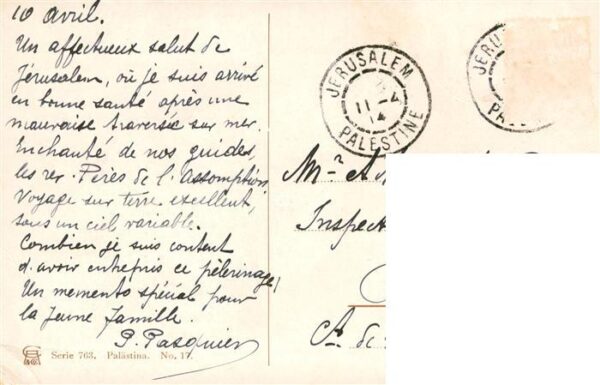 10 avril.
Un affectueux salut de
Jérusalem, où je suis arrivé
en bonne santé après une
mauvaise traversée sur mer.
Enchanté de nos guides,
les rev. Pères de l'Assomption
Voyage sur terre excellent,
sous un ciel variable.
Combien je suis content
d'avoir entrepris ce pèlerinage!
Un memento spécial pour
la Jeune famille.
P. Pasquier
Serie 763. Palästina. No. 17.
JERUSALEM
11-4
14
PALESTINE
JERU
PA
Mr A
Inspect
Ct. de